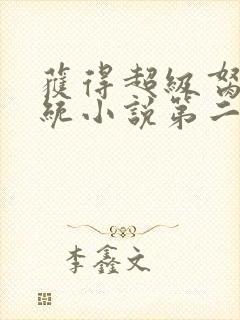 獲得超級
統小說第二
李鑫文